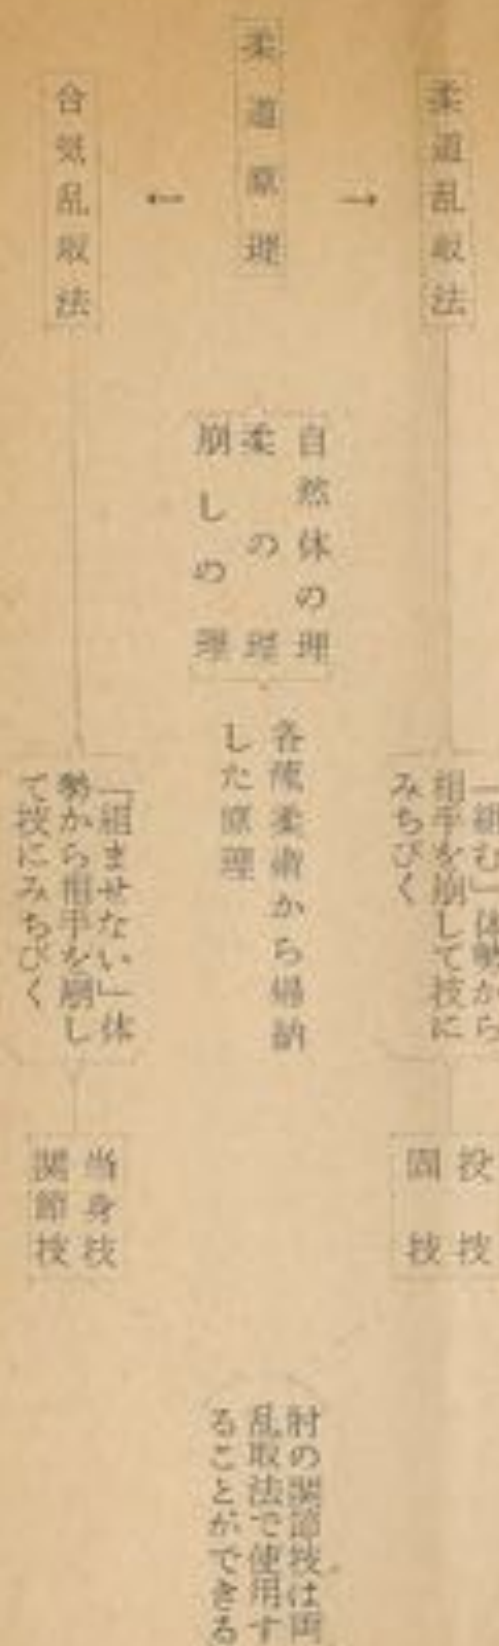 柔道乱取法
柔道原理
合気乱取法
自然体の理
柔の理
崩しの理
各流柔術から帰納
した原理
「組む」体勢から
相手を崩して技に
みちびく
「組ませない」体
勢から相手を崩し
て技にみちびく
投技
固技
当身技
関節技
肘の関節技は両
乱取法で使用す
ることができる